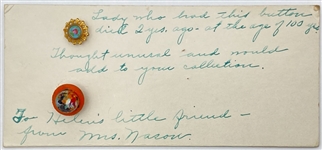 Lady who had this button
died 2 yrs. ago - at the age of 100 yrs
Thought unusual and would
add to your collection.
To Helen's little friend -
from Mrs. Nason.